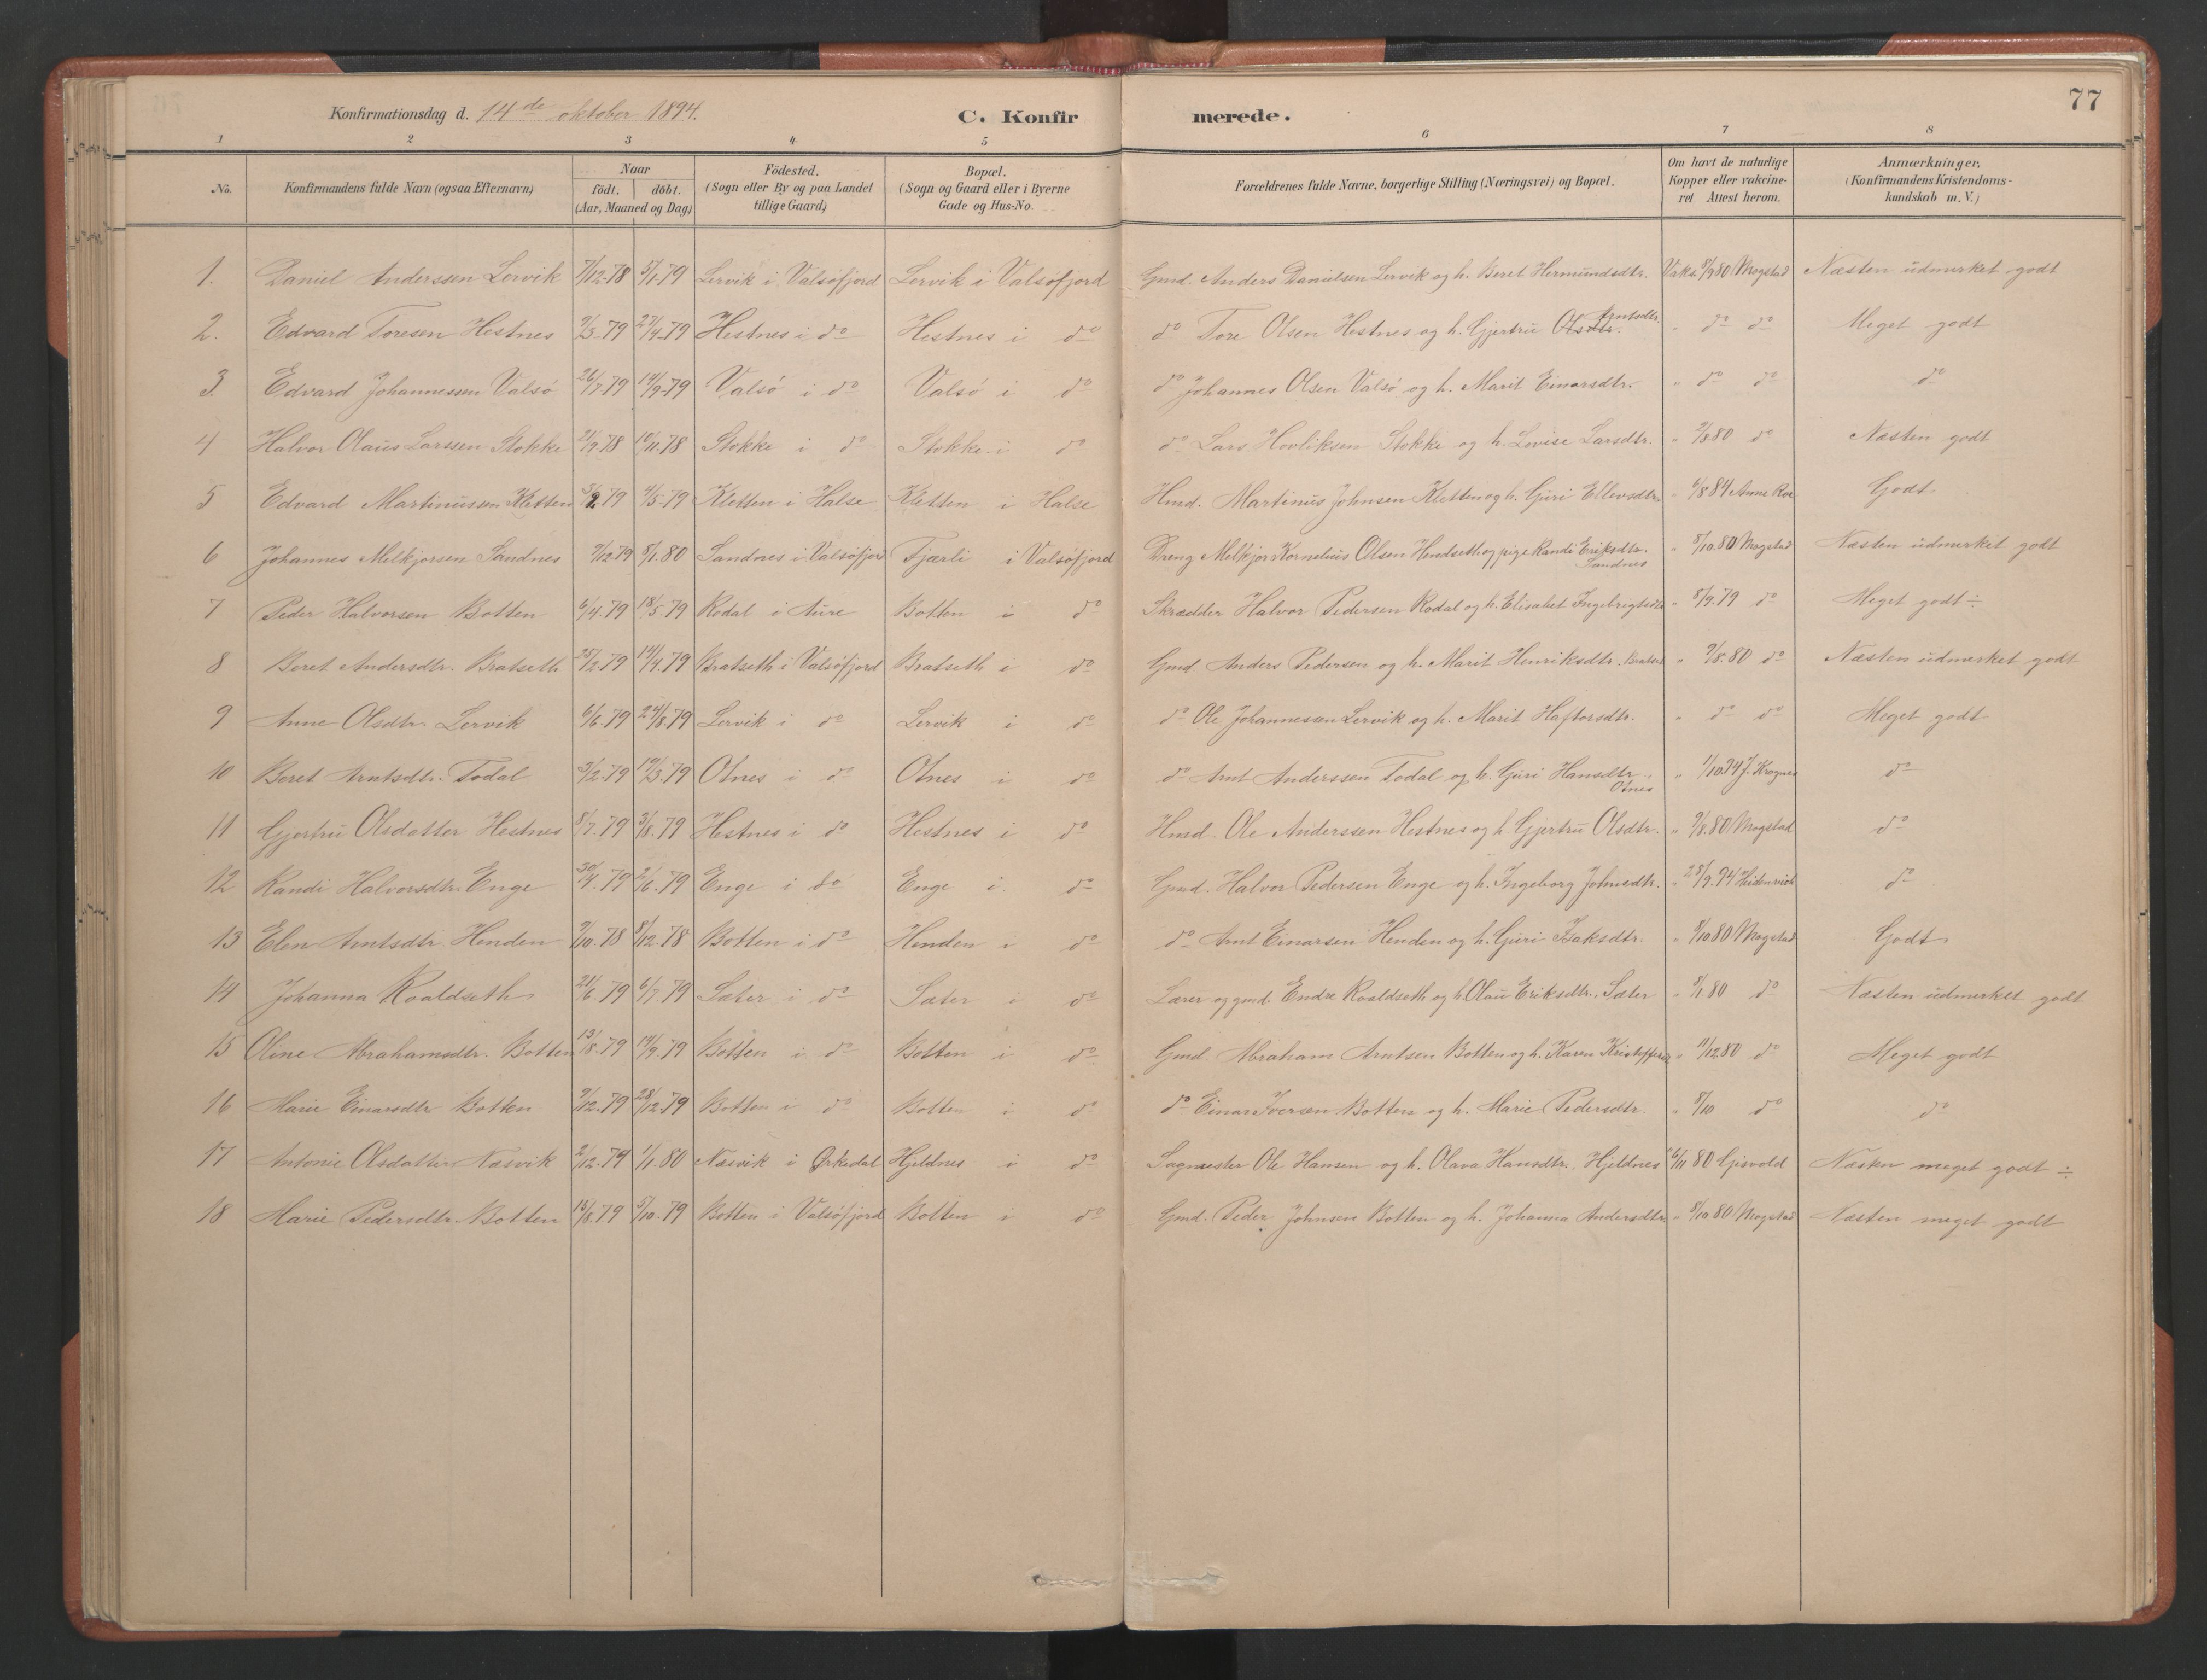 77
Konfirmationsdag d. 14de oktober 1894.
C. Konfirmerede.
1 2 3 4 5 6 7 8
No. Konfirmandens fulde Navn (ogsaa Efternavn) Naar födt. döbt. (Aar, Maaned og Dag) Födested. (Sogn eller By og paa Landet tillige Gaard) Bopæl. (Sogn og Gaard eller i Byerne Gade og Hus-No. Forældrenes fulde Navne, borgerlige Stilling (Næringsvei) og Bopæl. Om havt de naturlige Kopper eller vakcineret Attest herom. Anmærkninger, (Konfirmandens Kristendomskundskab m. V.)
1. Daniel Anderssen Lervik 7/12-78 5/1-79 Lervik i Valsöfjord Lervik i Valsöfjord Gmd. Anders Danielsen Lervik og h. Beret Hermundsdtr. Vaks. 8/9 80 Mogstad Næsten udmerket godt
2. Edvard Toresen Hestnes 9/3-79 27/4-79 Hestnes i do Hestnes i do do Tore Olsen Hestnes og h. Gjertru Olsdtr. Arntsdtr. " do do Meget godt
3. Edvard Johannessen Valsö 26/7-79 14/9-79 Valsö i do Valsö i do do Johannes Olsen Valsö og h. Marit Einarsdtr. " do do do
4 Halvor Olaus Larssen Stokke 21/9-78 10/11-78 Stokke i do Stokke i do do Lars Hovliksen Stokke og h. Lovise Larsdtr. " 2/8 80 do Næsten godt
5 Edvard Martinussen Kletten 3/2 79 4/5-79 Kletten i Halse Kletten i Halse Hmd. Martinus Johnsen Kletten og h. Guri Ellevsdtr. " 6/8 84 Anne Roe Godt
6 Johannes Melkjorsen Sandnes 9/12 79 8/1.80 Sandnes i Valsöfjord Fjærli i Valsöfjord Dreng Melkjor Kornelius Olsen Hendseth og pige Randi Eriksdtr. Sandnes " 8/10 80 Mogstad Næsten udmerket godt
7 Peder Halvorsen Botten 6/4.79 18/5-79 Rodal i Aure Botten i do Skrædder Halvor Pedersen Rodal og h. Elisabet Ingebrigtsdtr " 8/9.79 do Meget godt ÷
8 Beret Andersdtr. Bratseth 25/2.79 14/4.79 Bratseth i Valsöfjord Bratseth i do Gmd. Anders Pedersen og h. Marit Henriksdtr. " 9/8.80 do Næsten udmerket godt
9 Anne Olsdtr. Lervik 6/6.79 24/8.79 Lervik i do Lervik i do do Ole Johannessen Lervik og h. Marit Haftorsdtr. " do do Meget godt
10 Beret Arntsdtr. Todal 3/2.79 19/3.79 Otnes i do Otnes i do do Arnt Anderssen Todal og h. Guri Hansdtr. Otnes " 1/10 94 J. Krognes do
11 Gjertru Olsdatter Hestnes 8/7.79 3/8.79 Hestnes i do Hestnes i do Hmd. Ole Anderssen Hestnes og h. Gjertru Olsdtr. " 9/8.80 Mogstad do
12 Randi Halvorsdtr. Enge 30/4.79 2/6.79 Enge i do Enge i do Gmd. Halvor Pedersen Enge og h. Ingeborg Johnsdtr. " 28/9.94 do
13 Elen Arntsdtr. Henden 9/10.78 8/12.78 Botten i do Henden i do do Arnt Einarsen Henden og h. Guri Isaksdtr. " 8/10 80 Mogstad Godt
14 Johanna Roaldseth 21/6.79 6/7.79 Sæter i do Sæter i do Lærer og gmd. Endre Roaldseth og h. Olau Eriksdtr. Sæter " 8/1.80 do Næsten udmerket godt
15 Oline Abrahamsdtr. Botten 13/8.79 14/9.79 Botten i do Botten i do Gmd. Abraham Arntsen Botten og h. Karen Kristoffersdtr " 11/12.80 do Meget godt
16 Marie Einarsdtr Botten 9/12.79 28/12.79 Botten i do Botten i do do Einar Iversen Botten og h. Marie Pedersdtr. " 8/10 do do
17 Antonie Olsdatter Næsvik 2/12.79 1/1.80 Næsvik i Orkedal Hjeldnes i do Sagmester Ole Hansen og h. Olava Hansdtr. Hjeldnes " 6/11 80 Gisvold Næsten meget godt ÷
18 Marie Pedersdtr. Botten 15/8.79 5/10.79 Botten i Valsöfjord Botten i do Gmd. Peder Johnsen Botten og h. Johanna Andersdtr " 8/10 80 Mogstad Næsten meget godt